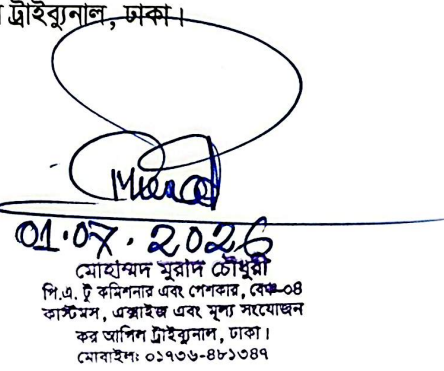 ট্রাইব্যুনাল, ঢাকা।
01.07.2026
মোহাম্মদ মুরাদ চৌধুরী
পি.এ. টু কমিশনার এবং পেশকার, বেঞ্চ-০৪
কাস্টমস, এক্সাইজ এবং মূল্য সংযোজন
কর আপিল ট্রাইব্যুনাল, ঢাকা।
মোবাইল: ০১৭৩৬-৪৮১৩৪৭